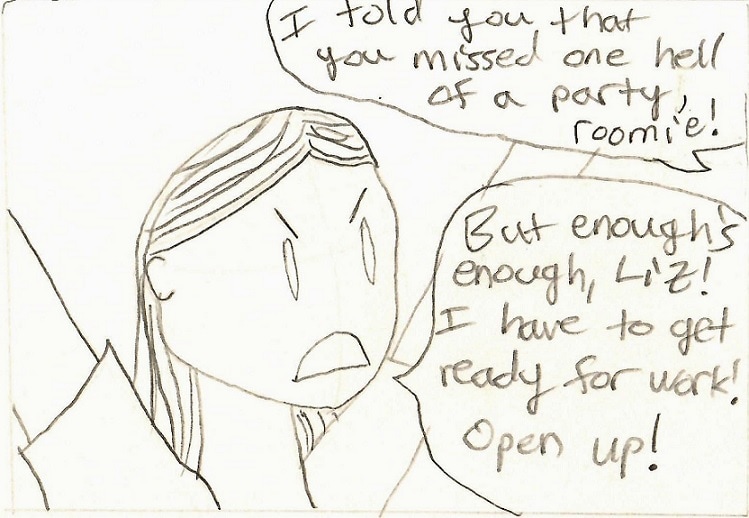 I told you that
you missed one hell
of a party,
roomie!
But enough's
enough, Liz!
I have to get
ready for work!
Open up!